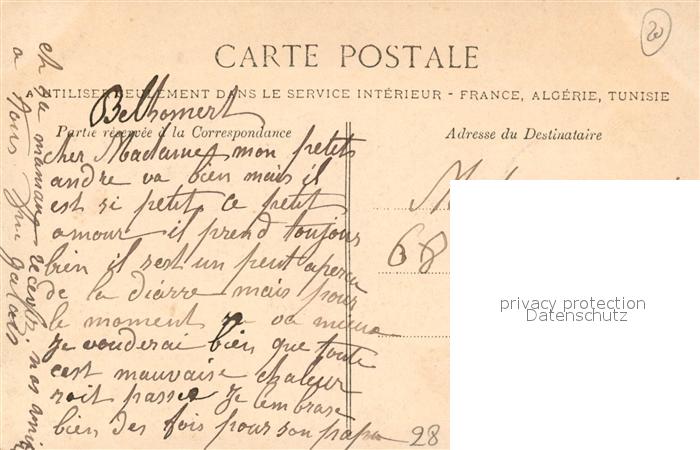 20
CARTE POSTALE
A UTILISER SEULEMENT DANS LE SERVICE INTÉRIEUR - FRANCE, ALGÉRIE, TUNISIE
Belhomert
Partie réservée à la Correspondance
Adresse du Destinataire
cher Madame mon petits
andre va bien mais il
est si petit ce petit
amour il prend toujours
bien il sest un peut aperçu
de la diarre mais pour
le moment sa va mieux
Je vouderai bien que toute
cest mauvaise chaleur
soit passee Je lembrase
bien des fois pour son papa
et sa maman recevez nos amitis
a tous
68
28
privacy protection
Datenschutz